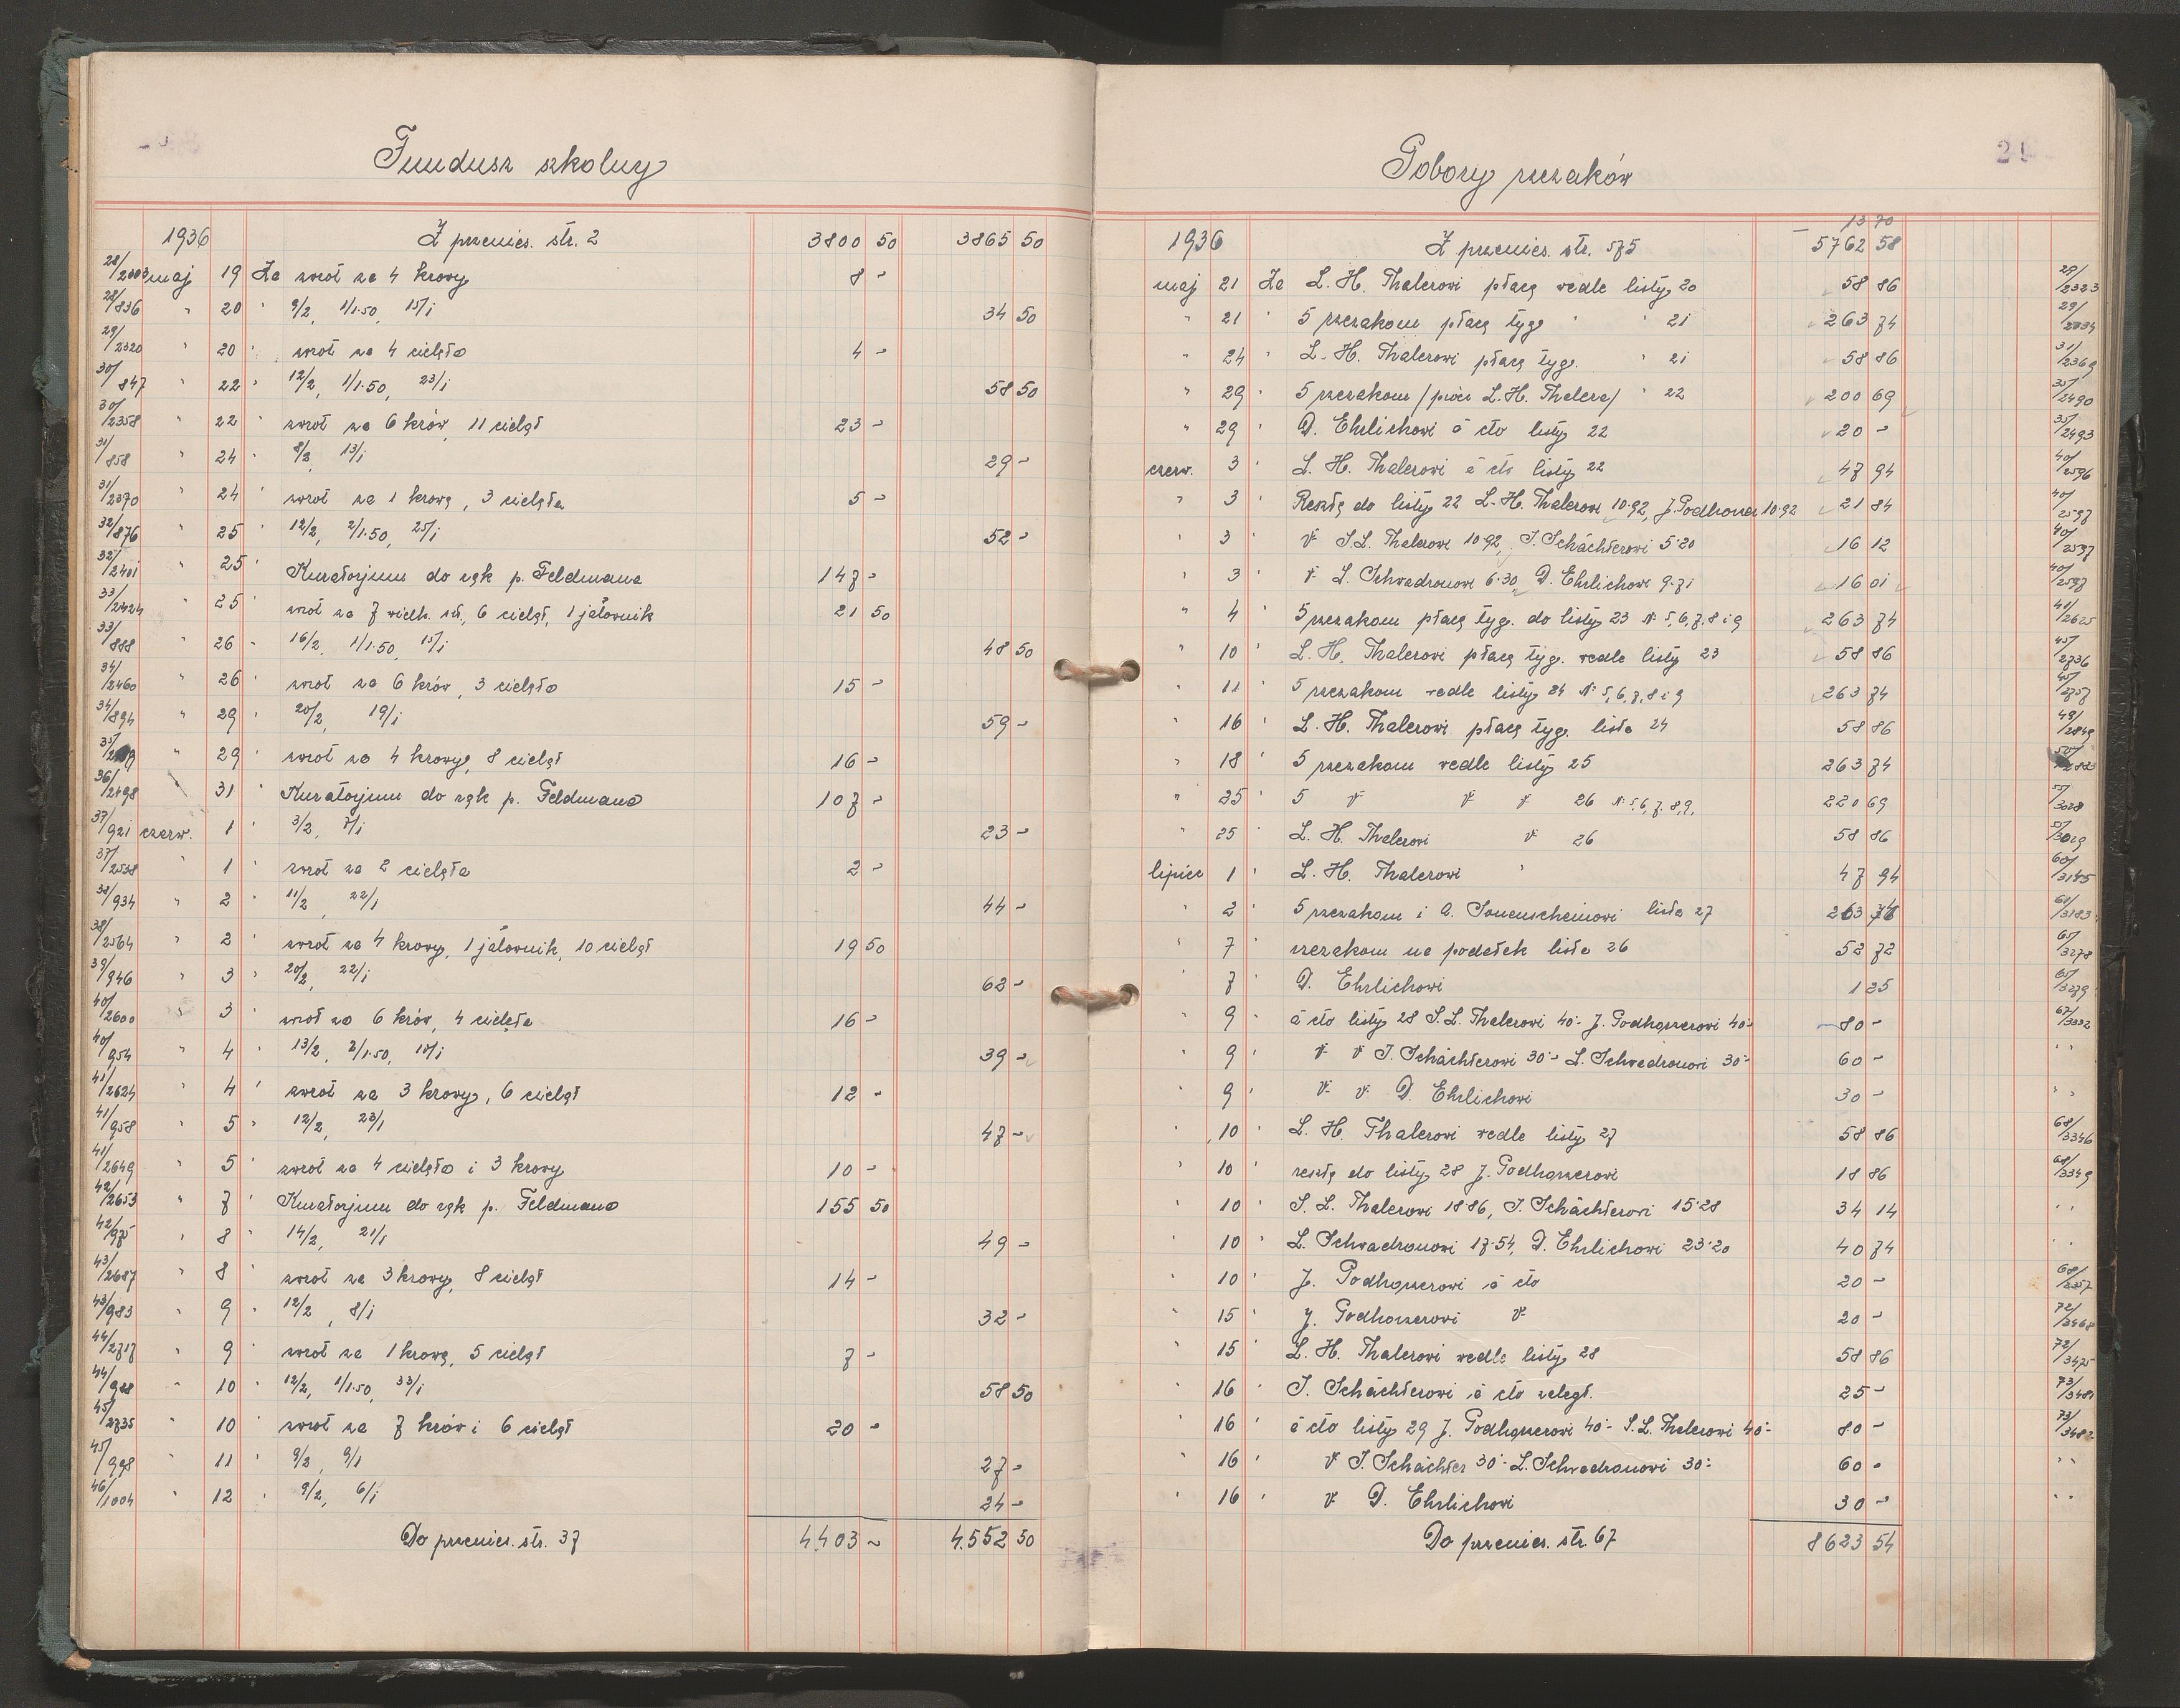 Fundusz szkolny
1936 Z przenies. str. 2 3800 50 3865 50
28/2303 maj 19 Za zwrot za 4 krowy 8 -
28/836 " 20 " 9/2, 1/1.50, 15/1 34 50
29/2320 " 20 " zwrot za 4 cielęta 4 -
30/847 " 22 " 12/2, 1/1.50, 23/1 58 50
30/2358 " 22 " zwrot za 6 krów, 11 cieląt 23 -
31/858 " 24 " 8/2, 13/1 29 -
31/2370 " 24 " zwrot za 1 krowę, 3 cielęta 5 -
32/876 " 25 " 12/2, 2/1.50, 25/1 52 -
32/2401 " 25 " Kuratorjum do rąk p. Feldmana 147 -
33/2424 " 25 " zwrot za 7 wielk. szt., 6 cieląt, 1 jałownik 21 50
33/888 " 26 " 16/2, 1/1.50, 15/1 48 50
34/2460 " 26 " zwrot za 6 krów, 3 cielęta 15 -
34/894 " 29 " 20/2, 19/1 59 -
35/ " 29 " zwrot za 4 krowy, 8 cieląt 16 -
36/2498 " 31 " Kuratorjum do rąk p. Feldmana 107 -
37/921 czerw. 1 " 3/2, 7/1 23 -
37/2538 " 1 " zwrot za 2 cielęta 2 -
38/934 " 2 " 11/2, 22/1 44 -
38/2564 " 2 " zwrot za 4 krowy, 1 jałownik, 10 cieląt 19 50
39/946 " 3 " 20/2, 22/1 62 -
40/2600 " 3 " zwrot za 6 krów, 4 cielęta 16 -
40/954 " 4 " 13/2, 2/1.50, 10/1 39 -
41/2624 " 4 " zwrot za 3 krowy, 6 cieląt 12 -
41/958 " 5 " 12/2, 23/1 47 -
41/2649 " 5 " zwrot za 4 cielęta i 3 krowy 10 -
42/2653 " 7 " Kuratorjum do rąk p. Feldmana 155 50
42/975 " 8 " 14/2, 21/1 49 -
43/2687 " 8 " zwrot za 3 krowy, 8 cieląt 14 -
43/983 " 9 " 12/2, 8/1 32 -
44/2717 " 9 " zwrot za 1 krowę, 5 cieląt 7 -
44/988 " 10 " 12/2, 1/1.50, 33/1 58 50
45/2735 " 10 " zwrot za 7 krów i 6 cieląt 20 -
45/998 " 11 " 9/2, 9/1 27 -
46/1004 " 12 " 9/2, 6/1 24 -
Do przenies. str. 37 4.403 - 4.552 50
Pobory rzezaków
13 70
1936 Z przenies. str. 575 - 5762 58
maj 21 Za L. H. Thalerowi płacę wedle listy 20 58 86 29/2323
" 21 " 5 rzezakom płacę tyg. " " 21 263 74 29/2334
" 24 " L. H. Thalerowi płacę tyg. " 21 58 86 31/2369
" 29 " 5 rzezakom /prócz L. H. Thalera/ " 22 200 69 35/2490
" 29 " D. Ehrlichowi á cto listy 22 20 - 35/2493
czerw. 3 " L. H. Thalerowi á cto listy 22 47 94 40/2596
" 3 " Resztę do listy 22 L. H. Thalerowi 10.92, J. Podhorzer 10.92 21 84 40/2597
" 3 " V S. L. Thalerowi 10.92, I. Schächterowi 5.20 16 12 40/2597
" 3 " V L. Schwadronowi 6.30, D. Ehrlichowi 9.71 16 01 40/2597
" 4 " 5 rzezakom płacę tyg. do listy 23 № 5, 6, 7, 8 i 9 263 74 41/2625
" 10 " L. H. Thalerowi płacę tyg. wedle listy 23 58 86 45/2736
" 11 " 5 rzezakom wedle listy 24 № 5, 6, 7, 8 i 9 263 74 45/2757
" 16 " L. H. Thalerowi płacę tyg. lista 24 58 86 49/2849
" 18 " 5 rzezakom wedle listy 25 263 74 50/
" 25 " 5 V V V 26 № 5, 6, 7, 8, 9, 220 69 55/3028
" 25 " L. H. Thalerowi V 26 58 86 55/3029
lipiec 1 " L. H. Thalerowi " 47 94 60/3145
" 2 " 5 rzezakom i A. Sonenscheinowi lista 27 263 74 61/3183
" 7 " rzezakom na podatek lista 26 52 72 65/3278
" 7 " D. Ehrlichowi 1 25 65/3279
" 9 " á cto listy 28 S. L. Thalerowi 40.- J. Podhorzerowi 40.- 80 - 67/3332
" 9 " V V I. Schächterowi 30.- L. Schwadronowi 30.- 60 - " "
" 9 " V V D. Ehrlichowi 30 - " "
" 10 " L. H. Thalerowi wedle listy 27 58 86 68/3346
" 10 " resztę do listy 28 J. Podhorzerowi 18 86 68/3349
" 10 " S. L. Thalerowi 18 86, I. Schächterowi 15.28 34 14 " "
" 10 " L. Schwadronowi 17.54, D. Ehrlichowi 23.20 40 74 " "
" 10 " J. Podhorzerowi á cto 20 - 68/3357
" 15 " J. Podhorzerowi V 20 - 72/3468
" 15 " L. H. Thalerowi wedle listy 28 58 86 72/3475
" 16 " I. Schächterowi á cto zaległ. 25 - 73/3481
" 16 " á cto listy 29 J. Podhorzerowi 40.- S. L. Thalerowi 40.- 80 - 73/3482
" 16 " V I. Schächter 30.- L. Schwadronowi 30.- 60 - " "
" 16 " V D. Ehrlichowi 30 - " "
Do przenies. str. 67 8623 54